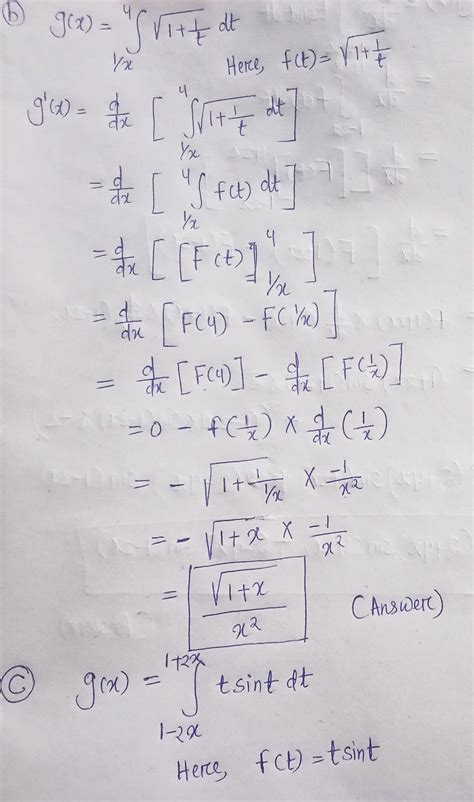 (b) g(x) = ∫_{1/x}^{4} √(1+1/t) dt
Here, f(t) = √(1+1/t)
g'(x) = d/dx [ ∫_{1/x}^{4} √(1+1/t) dt ]
= d/dx [ ∫_{1/x}^{4} f(t) dt ]
= d/dx [ [F(t)]_{1/x}^{4} ]
= d/dx [ F(4) - F(1/x) ]
= d/dx [F(4)] - d/dx [F(1/x)]
= 0 - f(1/x) × d/dx (1/x)
= - √(1+1/(1/x)) × -1/x²
= - √(1+x) × -1/x²
= √(1+x)/x² (Answer)
(c) g(x) = ∫_{1-2x}^{1+2x} t sint dt
Here, f(t) = t sint